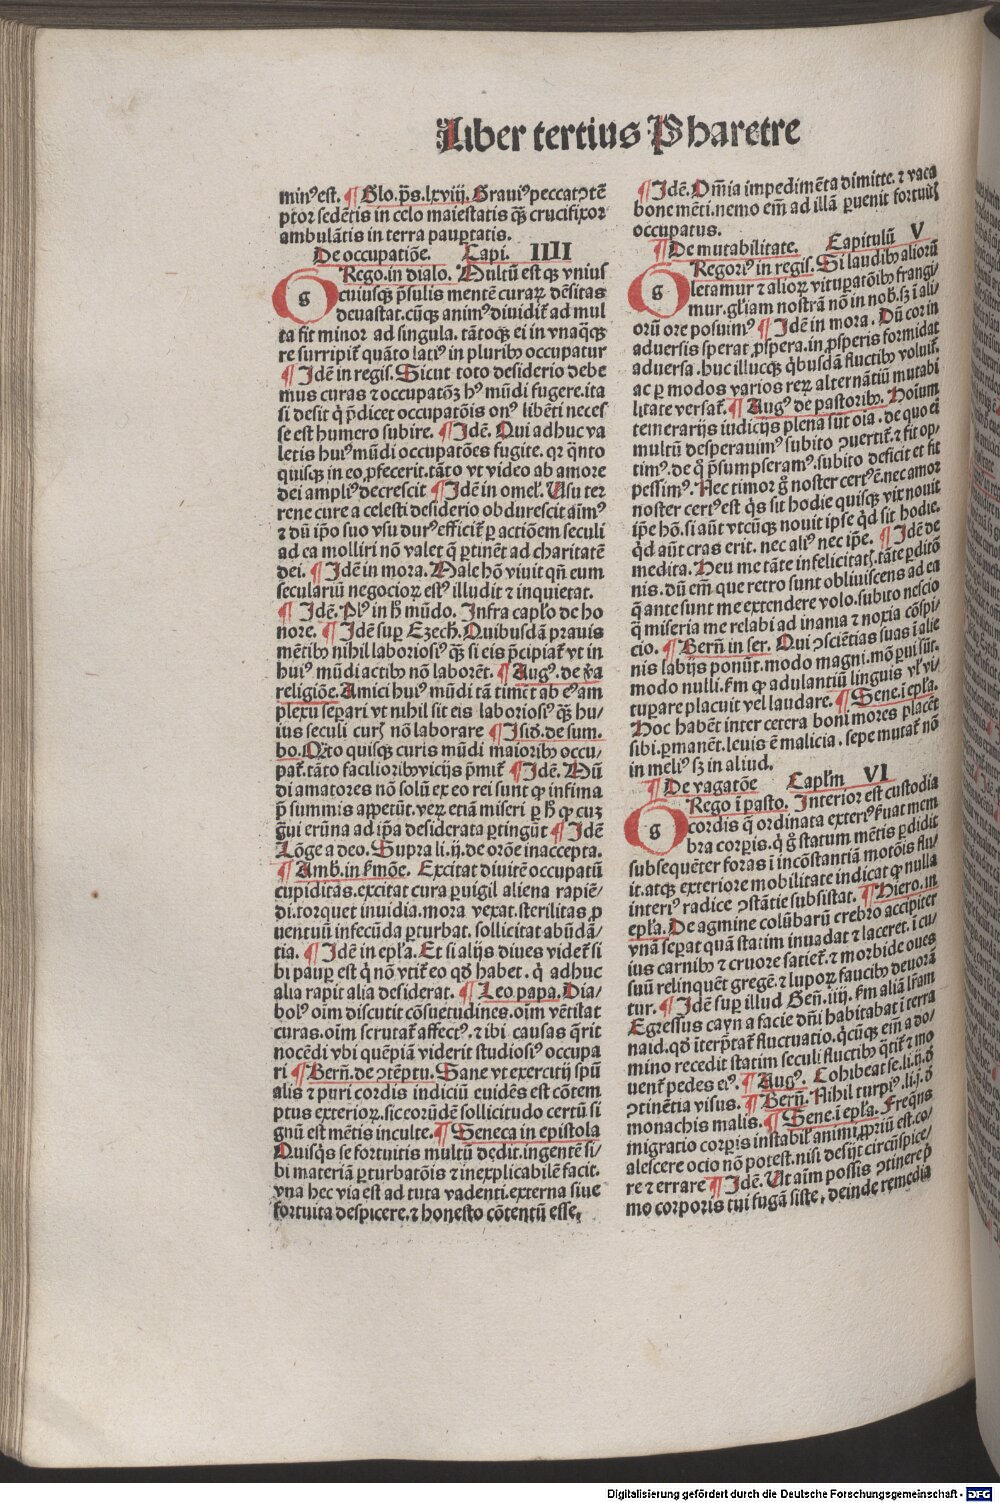 Liber tertius Pharetre
minꝰest. ¶ Glo.p̄s.lxviij. Grauiꝰpeccat ꝯtē
ptor sedētis in celo maiestatis q̄ꝫ crucifixor
ambulātis in terra paupertatis.
De occupatiōe. Capi. IIII
gRego.in dialo. Multū est qꝫ vnius
cuiusqꝫ p̄sulis mentē curaꝝ dēsitas
deuastat.cūqꝫ animꝰdiuidit᷑ ad mul
ta fit minor ad singula. tātoqꝫ ei in vnaq̄qꝫ
re surripit᷑ quāto latiꝰ in pluribꝫ occupatur
¶ Idē in regis. Sicut toto desiderio debe
mus curas ⁊ occupatōꝫ hꝰ mūdi fugere.ita
si desit q̇ p̄dicet occupatōis onꝰ libēti neces
se est humero subire. ¶ Idē. Qui adhuc va
letis huiꝰ mūdi occupatōes fugite. qꝛ q̄nto
quisqꝫ in eo ꝓfecerit.tāto vt video ab amore
dei ampliꝰdecrescit ¶ Idē in omel᷑. Usu ter
rene cure a celesti desiderio obdurescit aīmꝰ
⁊ dū ip̄o suo vsu durꝰefficit᷑ ꝑ actiōem seculi
ad ea molliri nō valet q̄ ꝑtinēt ad charitatē
dei. ¶ Idē in mora. Male hō viuit qn̄ eum
seculariū negocioꝝ estꝰ illudit ⁊ inquietat.
¶ Idē. Plꝰ in h̄ mūdo. Infra cap̄lo de ho
nore. ¶ Idē sup Ezech̄. Quibusdā prauis
mētibꝫ nihil laboriosiꝰ q̄ꝫ si eis p̄cipiat᷑ vt in
huiꝰ mūdi actibꝫ nō laborēt. ¶ Augꝰ.de v̄a
religiōe.Amici huiꝰ mūdi tā timēt ab eiꝰam
plexu separi vt nihil sit eis laboriosiꝰ q̄ꝫ hu/
ius seculi curꝭ nō laborare ¶ Isid.de sum.
bo.Qn̄to quisqꝫ curis mūdi maioribꝫ occu/
pat᷑.tāto facilioribꝫvicijs p̄mit᷑ ¶ Idē. Mū
di amatores nō solū ex eo rei sunt ꝙ infima
p̄ summis appetūt.veꝝ etiā miseri ꝑ h̄ ꝙ cuꝫ
g̃ui erūna ad ip̄a desiderata ꝑtingūt ¶ Idē
Lōge a deo. Supra li.ij.de orōne inaccepta.
¶ Amb.in s̄mōe. Excitat diuitē occupatū
cupiditas.excitat cura ꝑuigil aliena rapiē/
di.torquet inuidia.mora vexat.sterilitas ꝓ
uentuū infecūda ꝑturbat.sollicitat abūdā/
tia. ¶ Idē in epl̄a. Et si alijs diues videt᷑ si
bi pauꝑ est q̇ nō vtit᷑ eo qd̄ habet. q̇ adhuc
alia rapit alia desiderat. ¶ Leo papa. Dia/
bolꝰ oīm discutit cōsuetudines.oīm vētilat
curas.oīm scrutat᷑ affectꝰ.⁊ ibi causas q̄rit
nocēdi vbi quēpiā viderit studiosiꝰ occupa
ri ¶ Bern̄.de ꝯtēptu.Sane vt exercitij spū
alis ⁊ puri cordis indiciū euidēs est cōtem
ptus exterioꝝ.sic eorūdē sollicitudo certū si
gnū est mētis inculte. ¶ Seneca in epistola
Quisq̇s se fortuitis multū dedit.ingentē si/
bi materiā ꝑturbatōis ⁊ inexplicabilē facit.
vna hec via est ad tuta vadenti.externa siue
fortuita despicere.⁊ honesto cōtentū esse.
¶ Idē. Om̄ia impedimēta dimitte.⁊ vaca
bone mēti.nemo em̄ ad illā ꝑuenit fortuitꝭ
occupatus.
¶ De mutabilitate. Capitulū V
gRegoriꝰ in regis. Si laudibꝫ alioꝝ
letamur ⁊ alioꝝ vituꝑatōibꝫ frangi/
mur.gl̄iam nostrā nō in nob.sꝫ ī ali/
orū ore posuimꝰ ¶ Idē in mora. Dū cor in
aduersis sperat ꝓspera.in ꝓsperis formidat
aduersa.huc illucqꝫ q̇busdā fluctibꝫ voluit᷑.
ac ꝑ modos varios reꝝ alternātiū mutabi
litate versat᷑. ¶ Augꝰ de pastoribꝫ. Hoīum
temerarijs iudicijs plena sūt oīa.de quo eī
multū desperauimꝰ subito ꝯuertit᷑ ⁊ fit op/
timꝰ.de q̊ p̄sumpseramꝰ.subito deficit et fit
pessimꝰ.Nec timor g̊ noster certꝰē.nec amor
noster certꝰest q̇s sit hodie quisqꝫ vix nouit
ip̄e hō.si aūt vtcūqꝫ nouit ipse qd̄ sit hodie.
qd̄ aūt cras erit.nec aliꝰ nec ip̄e. ¶ Idē de
medita.Heu me tāte infelicitatꝭ.tāte ꝑditō
nis.dū em̄ que retro sunt obliuiscens ad ea
q̄ ante sunt me extendere volo.subito nescio
q̄ miseria me relabi ad inania ⁊ noxia cōspi/
cio. ¶ Bern̄ in ser. Qui ꝯsciētias suas ī alie
nis labijs ponūt.modo magni.mō ꝑui sūt.
modo nulli.s̄m ꝙ adulantiū linguis vl᷑ vi/
tuꝑare placuit vel laudare. ¶ Sene.ī epl̄a.
Hoc habēt inter cetera boni mores placēt
sibi.ꝑmanēt.leuis ē malicia.sepe mutat᷑ nō
in meliꝰ sꝫ in aliud.
¶ De vagatōe Capl̄m VI
gRego ī pasto. Interior est custodia
cordis q̄ ordinata exteriꝰs̄uat mem
bra corꝑis.q̇ g̊ statum mētis ꝑdidit
subsequēter foras ī incōstantiā motōis flu/
it.atqꝫ exteriore mobilitate indicat ꝙ nulla
interiꝰ radice ꝯstātie subsistat. ¶ Hiero.in
epl̄a.De agmine colūbarū crebro accipiter
vnā sepat quā statim inuadat ⁊ laceret.ī cu/
ius carnibꝫ ⁊ cruore satiet᷑.⁊ morbide oues
suū relinquēt gregē.⁊ lupoꝝ faucibꝫ deuorā
tur. ¶ Idē sup illud Gen̄.iiij.s̄m aliā lr̄am
Egressus cayn a facie dn̄i habitabat ī terra
naid.qd̄ īterp̄tat᷑ fluctuatio.q̇cūqꝫ em̄ a do/
mino recedit statim seculi fluctibꝫ q̄tit᷑ ⁊ mo
uent᷑ pedes eiꝰ. ¶ Augꝰ. Cohibeat se.li.ij.d̄
ꝯtinētia visus. ¶ Bern̄. Nihil turpiꝰ.li.j.d̄
monachis malis. ¶ Sene.ī epl̄a. Freq̄ns
migratio corꝑis instabil᷑ animi ꝓpriū est.co/
alescere ocio nō potest.nisi desijt circūspice/
re ⁊ errare ¶ Idē. Ut aīm possis ꝯtinere p̄
mo corporis tui fugā siste.deinde remedia
Digitalisierung gefördert durch die Deutsche Forschungsgemeinschaft - DFG